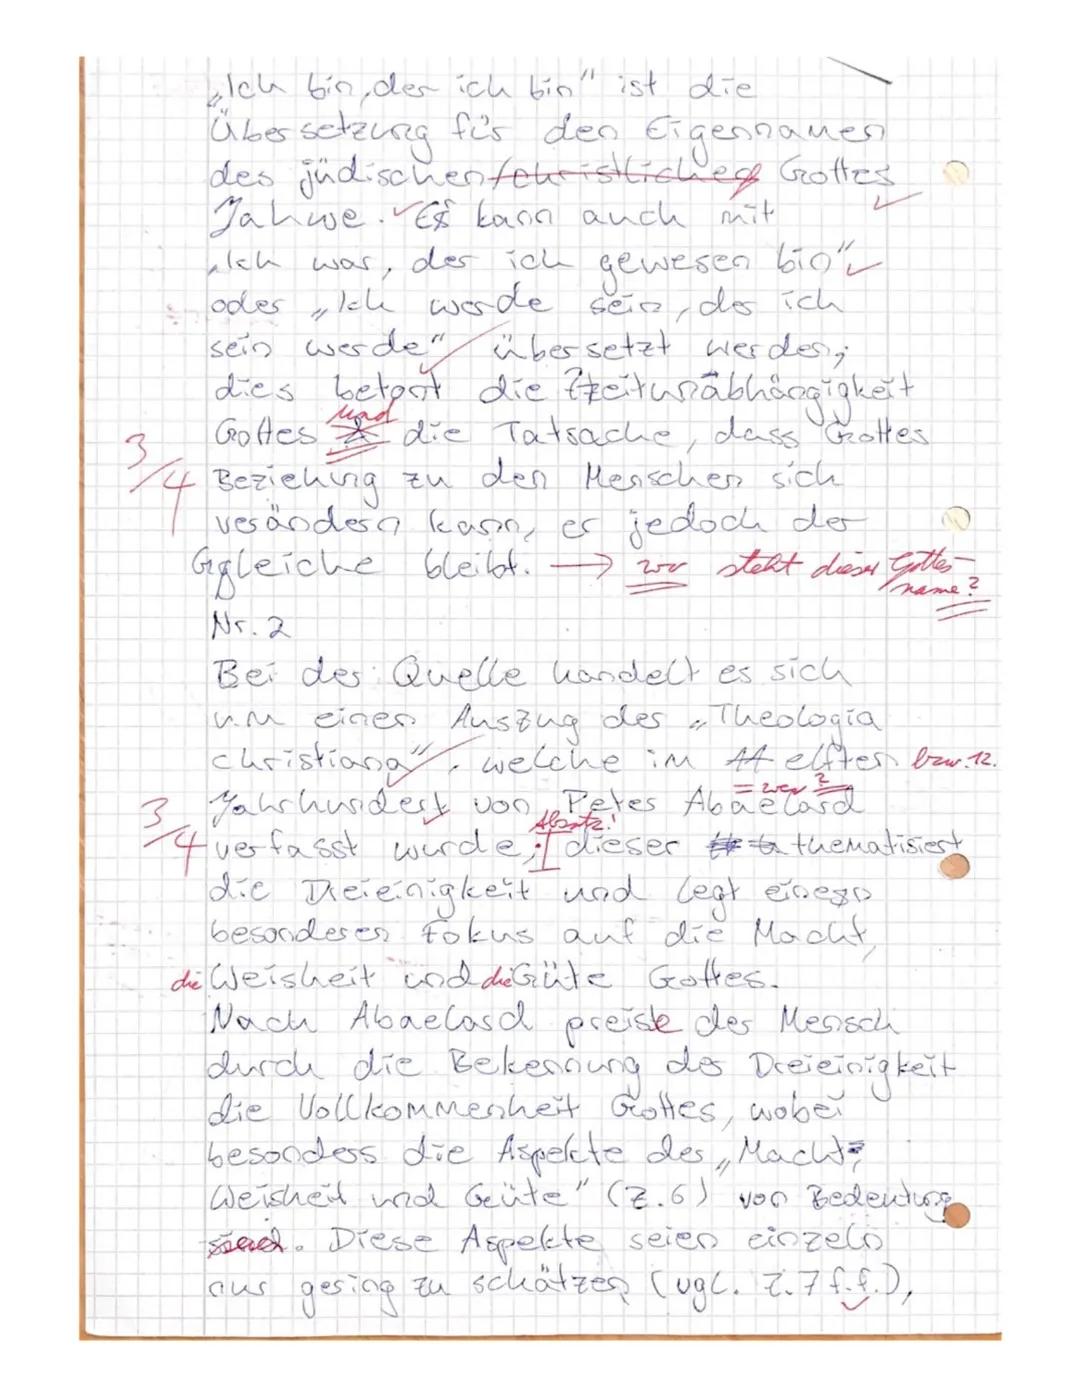 „Ich bin, der ich bin" ist die
Übersetzung für den Eigennamen
des jüdischen/christlichen Gottes
Jahwe. Es kann auch mit
„Ich war, der ich gewesen bin"
oder „Ich werde sein, der ich
sein werde" übersetzt werden;
dies betont die Zeitunabhängigkeit
und
Gottes & die Tatsache, dass Gottes
3/4 Beziehung zu den Menschen sich
verändern kann, er jedoch der
Gleiche bleibt. → wo steht dieser Gottes-
name?
Nr. 2
Bei der Quelle handelt es sich
um einen Auszug der „Theologia
christiana", welche im 11 elften bzw. 12.
= wer?
Jahrhundert von Peter Abaelard
Absatz!
3/4 verfasst wurde; dieser thematisiert
die Dreieinigkeit und legt einen
besonderen Fokus auf die Macht,
die Weisheit und die Güte Gottes.
Nach Abaelard preist der Mensch
durch die Bekennung der Dreieinigkeit
die Vollkommenheit Gottes, wobei
besonders die Aspekte der „Macht,
Weisheit und Güte" (Z.6) von Bedeutung
sind. Diese Aspekte seien einzeln
nur gering zu schätzen (vgl. Z.7 f.f.),